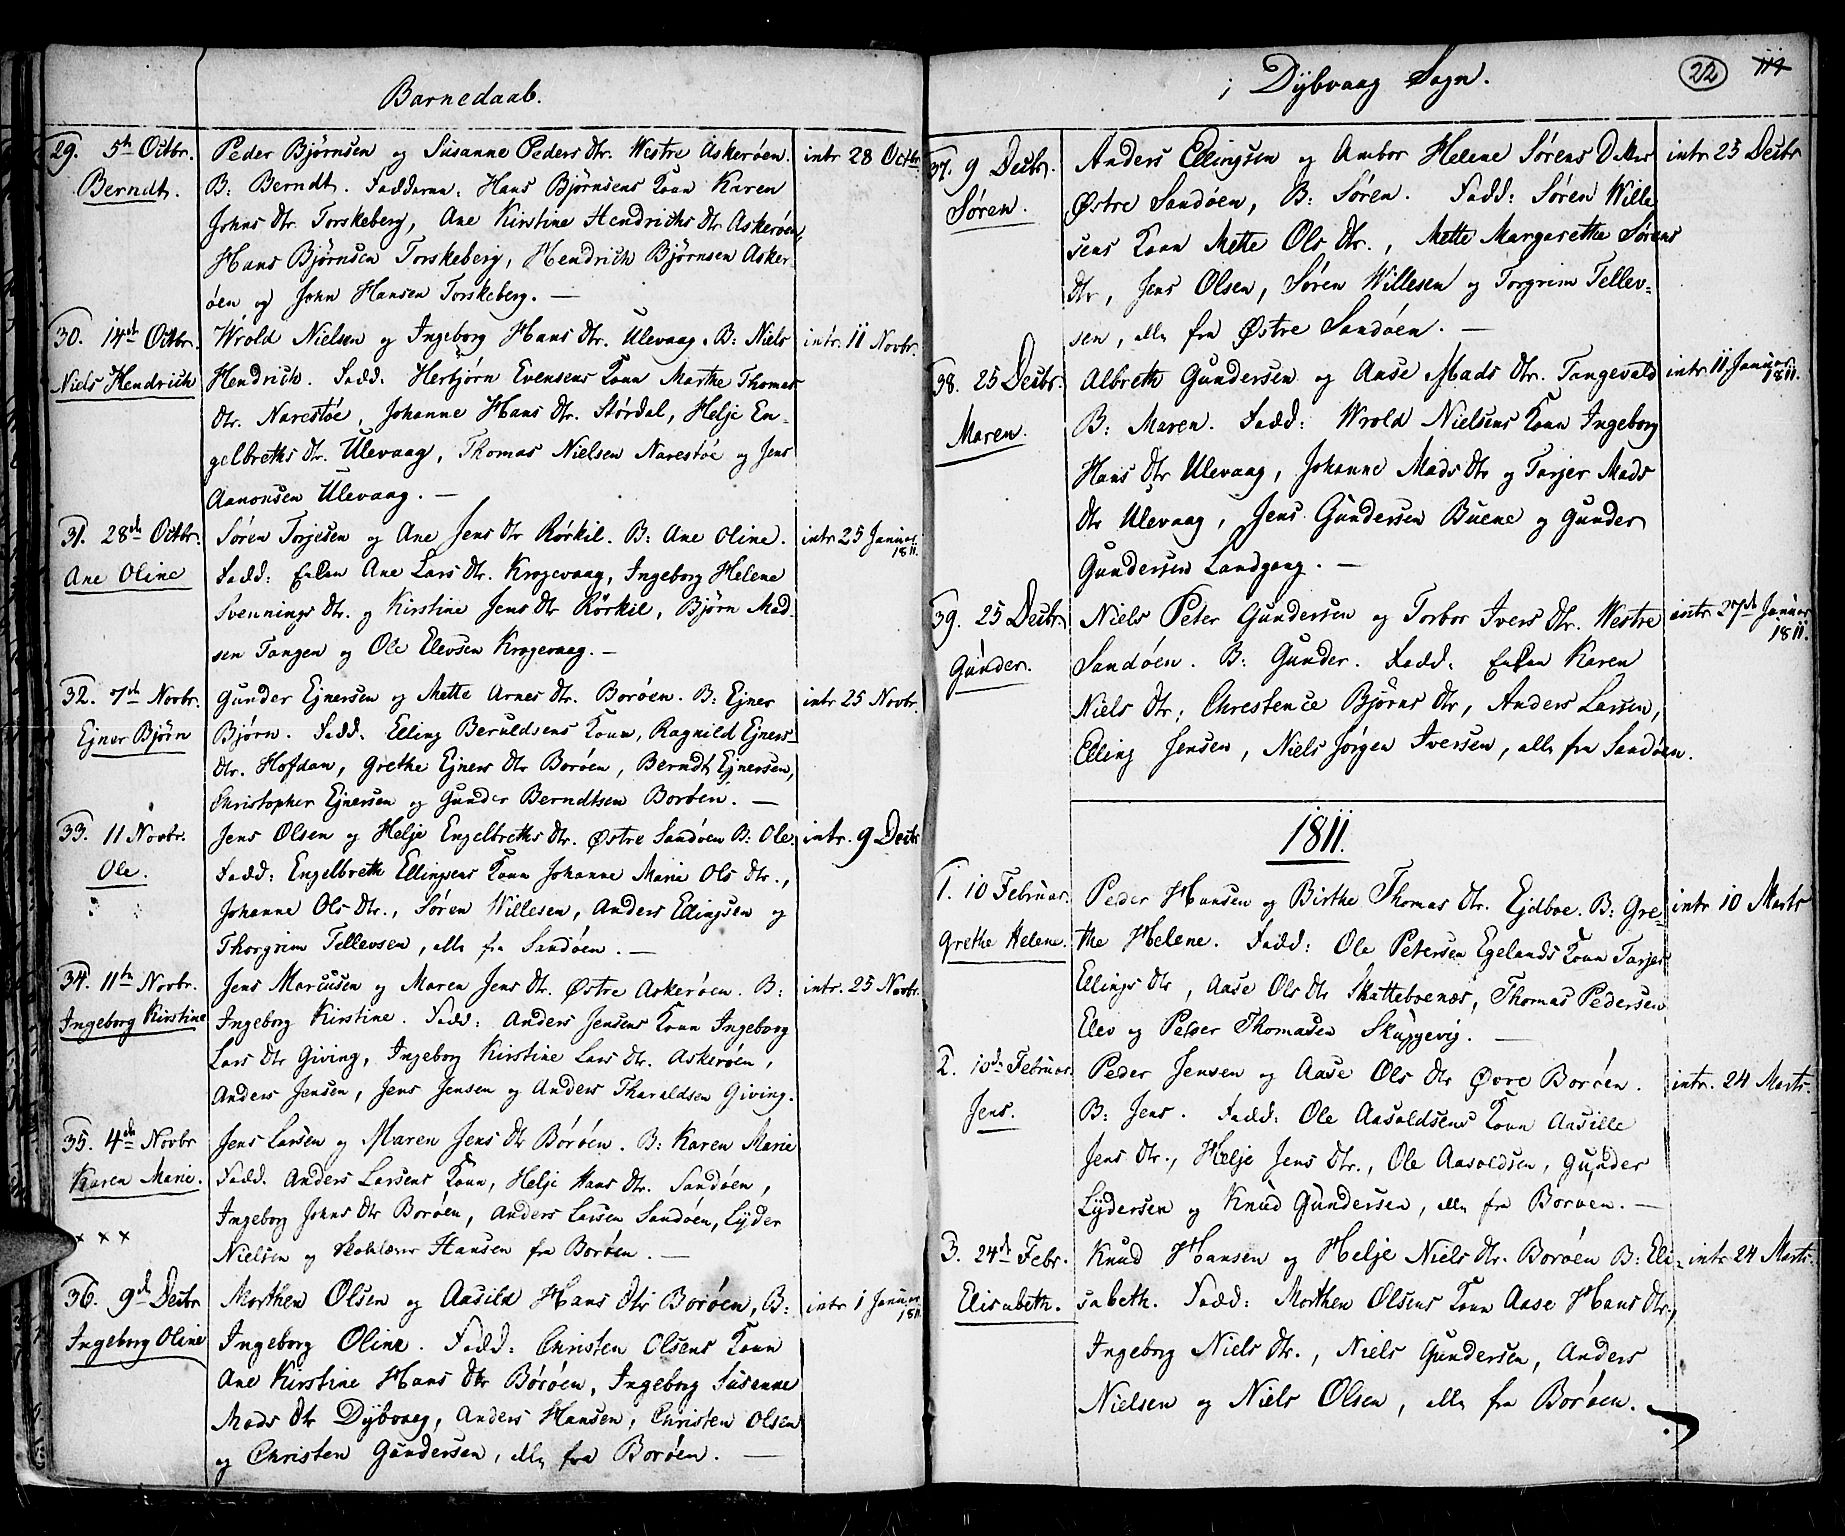 Barnedaab.
29. 5te Octbr.
Berndt.
Peder Björnsen og Susanne Peders Dtr. Westre Askeröen.
B: Berndt. Faddarna: Hans Björnsens Kone Karen
Johns Dtr. Torskeberg, Ane Kirstine Hendrichs Dtr Askeröen,
Hans Björnsen Torskeberg, Hendrich Björnsen Asker-
öen og John Hansen Torskeberg. —
intr 28 Octbr.
30. 14de Octbr.
Niels Hendrich
Wrold Nielsen og Ingeborg Hans Dtr. Ulevaag. B: Niels
Hendrich. Fadd: Herbjörn Evensens Kone Marthe Thomas
Dtr. Narestöe, Johanne Hans Dtr. Stördal, Helje En-
gelbreths Dtr. Ulevaag, Thomas Nielsen Narestöe og Jens
Aanonsen Ulevaag. —
intr. 11 Novbr.
31. 28de Octbr.
Ane Oline
Sören Torjesen og Ane Jens Dtr Rörkil. B: Ane Oline.
Fadd: Enken Ane Lars Dtr. Krogevaag, Ingeborg Helene
Svennings Dtr. og Kirstine Jens Dtr Rörkil, Björn Mad-
sen Tangen og Ole Elevsen Krogevaag. —
intr 25 Januar 1811
32. 7de Novbr.
Ejner Björn
Gunder Ejnersen og Mette Arnes Dtr. Boröen. B: Ejner
Björn. Fadd: Elling Beruldsens Kone, Ragnild Ejners-
Dtr. Hofdan, Grethe Ejners Dtr Boröen, Berndt Ejnersen,
Christopher Ejnersen og Gunder Berndtsen Boröen. —
intr 25 Novbr.
33. 11 Novbr.
Ole.
Jens Olsen og Helje Engelbreths Dtr. Östre Sandöen B: Ole.
Fadd: Engelbreth Ellingsens Kone Johanne Marie Ols Dtr.,
Johanne Ols Dtr., Sören Willesen, Anders Ellingsen og
Thorgrim Tellevsen, alle fra Sandöen. —
intr. 9 Decbr
34. 11te Novbr.
Ingeborg Kirstine
Jens Marcusen og Maren Jens Dtr. Östre Askeröen. B:
Ingeborg Kirstine. Fadd: Anders Jensens Kone Ingeborg
Lars Dtr Giving, Ingeborg Kirstine Lars Dtr. Askeröen,
Anders Jensen, Jens Jensen og Anders Tharaldsen Giving.
intr. 25 Novbr.
35. 4de Novbr
Karen Marie.
x x x
Jens Larsen og Maren Jens Dtr Boröen. B: Karen Marie
Fadd. Anders Larsens Kone, Helje Hans Dtr. Sandöen,
Ingeborg Johns Dtr Boröen, Anders Larsen Sandöen, Lyder
Nielsen og Skolelærer Hansen fra Boröen. —
36. 9de Decbr
Ingeborg Oline
Morthen Olsen og Aasild Hans Dtr Boröen, B:
Ingeborg Oline. Fadd: Christen Olsens Kone
Ane Kirstine Hans Dtr Boröen, Ingeborg Susanne
Mads Dtr Dybvaag, Anders Hansen, Christen Olsen
og Christen Gundersen, alle fra Boröen. —
intr 1 Januar 1811
i Dybvaag Sogn.
22
119
37. 9 Decbr.
Sören.
Anders Ellingsen og Ambor Helene Sörens Datter
Östre Sandöen, B: Sören. Fadd: Sören Wille
sens Kone Mette Ols Dtr., Mette Margarethe Sörens
Dtr, Jens Olsen, Sören Willesen og Torgrim Tellev-
sen, alle fra Östre Sandöen. —
intr 25 Decbr
38. 25 Decbr.
Maren.
Albreth Gundersen og Aase Mads Dtr. Tangevald
B: Maren. Fadd: Wrold Nielsens Kone Ingeborg
Hans Dtr Ulevaag, Johanne Mads Dtr og Tarjer Mads
Dtr Ulevaag, Jens Gundersen Buene og Gunder
Gundersen Landgang. —
intr 11 Januar. 1811.
39. 25 Decbr
Gunder.
Niels Peter Gundersen og Torbor Ivers Dtr. Westre
Sandöen. B: Gunder. Fadd: Enken Karen
Niels Dtr, Chrestence Björns Dtr, Anders Larsen,
Elling Jensen, Niels Jörgen Iversen, alle fra Sandöen.
intr. 27de Januar 1811.
1811.
1. 10 Februar.
Grethe Helene.
Peder Hansen og Birthe Thomas Dtr. Ejdboe. B: Gre-
the Helene. Fadd: Ole Petersen Egelands Kone Tarjer
Ellings Dtr, Aase Ols Dtr Skatteboenæs, Thomas Pedersen
Elev og Peder Thomasen Skuggevig. —
intr 10 Marts
2. 10de Februar.
Jens.
Peder Jensen og Aase Ols Dtr Övre Boröen.
B: Jens. Fadd: Ole Aasoldsens Kone Aasille
Jens Dtr., Helje Jens Dtr., Ole Aasoldsen, Gunder
Lydersen og Knud Gundersen, alle fra Boröen. —
intr. 24 Marts.
3. 24de Febr.
Elisabeth.
Knud Hansen og Helje Niels Dtr. Boröen B: Eli-
sabeth. Fadd: Morthen Olsens Kone Aase Hans Dtr.,
Ingeborg Niels Dtr., Niels Gundersen, Anders
Nielsen og Niels Olsen, alle fra Boröen.
intr 24 Marts.